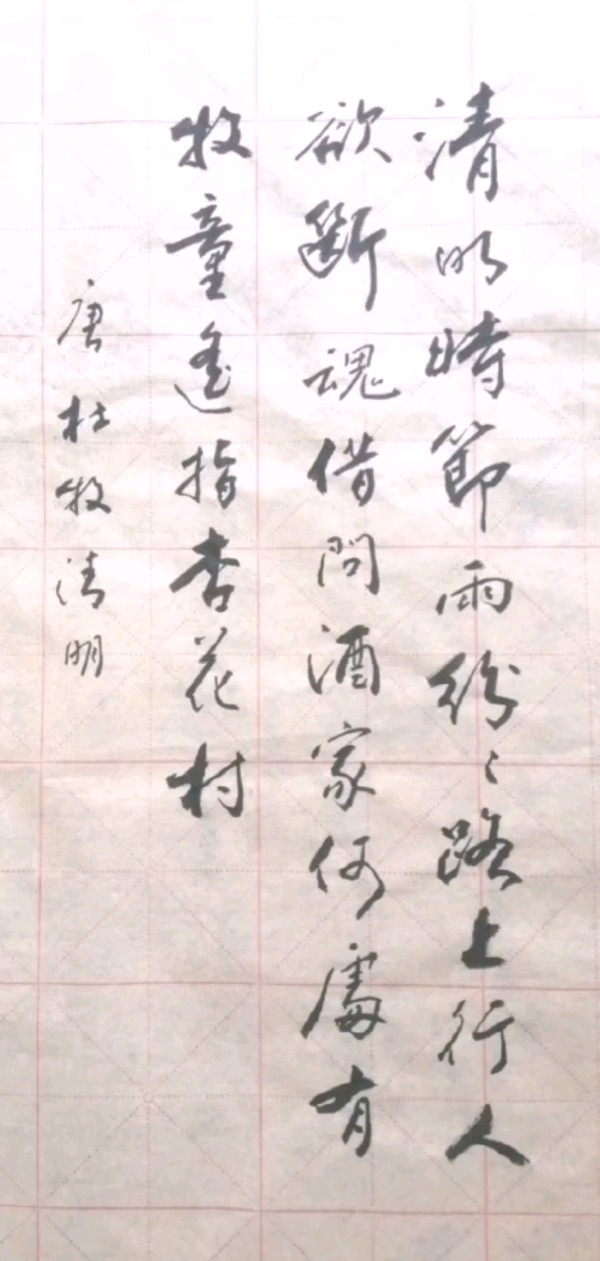 清明時節雨紛〻路上行人
欲斷魂借問酒家何處有
牧童遙指杏花村
唐杜牧清明